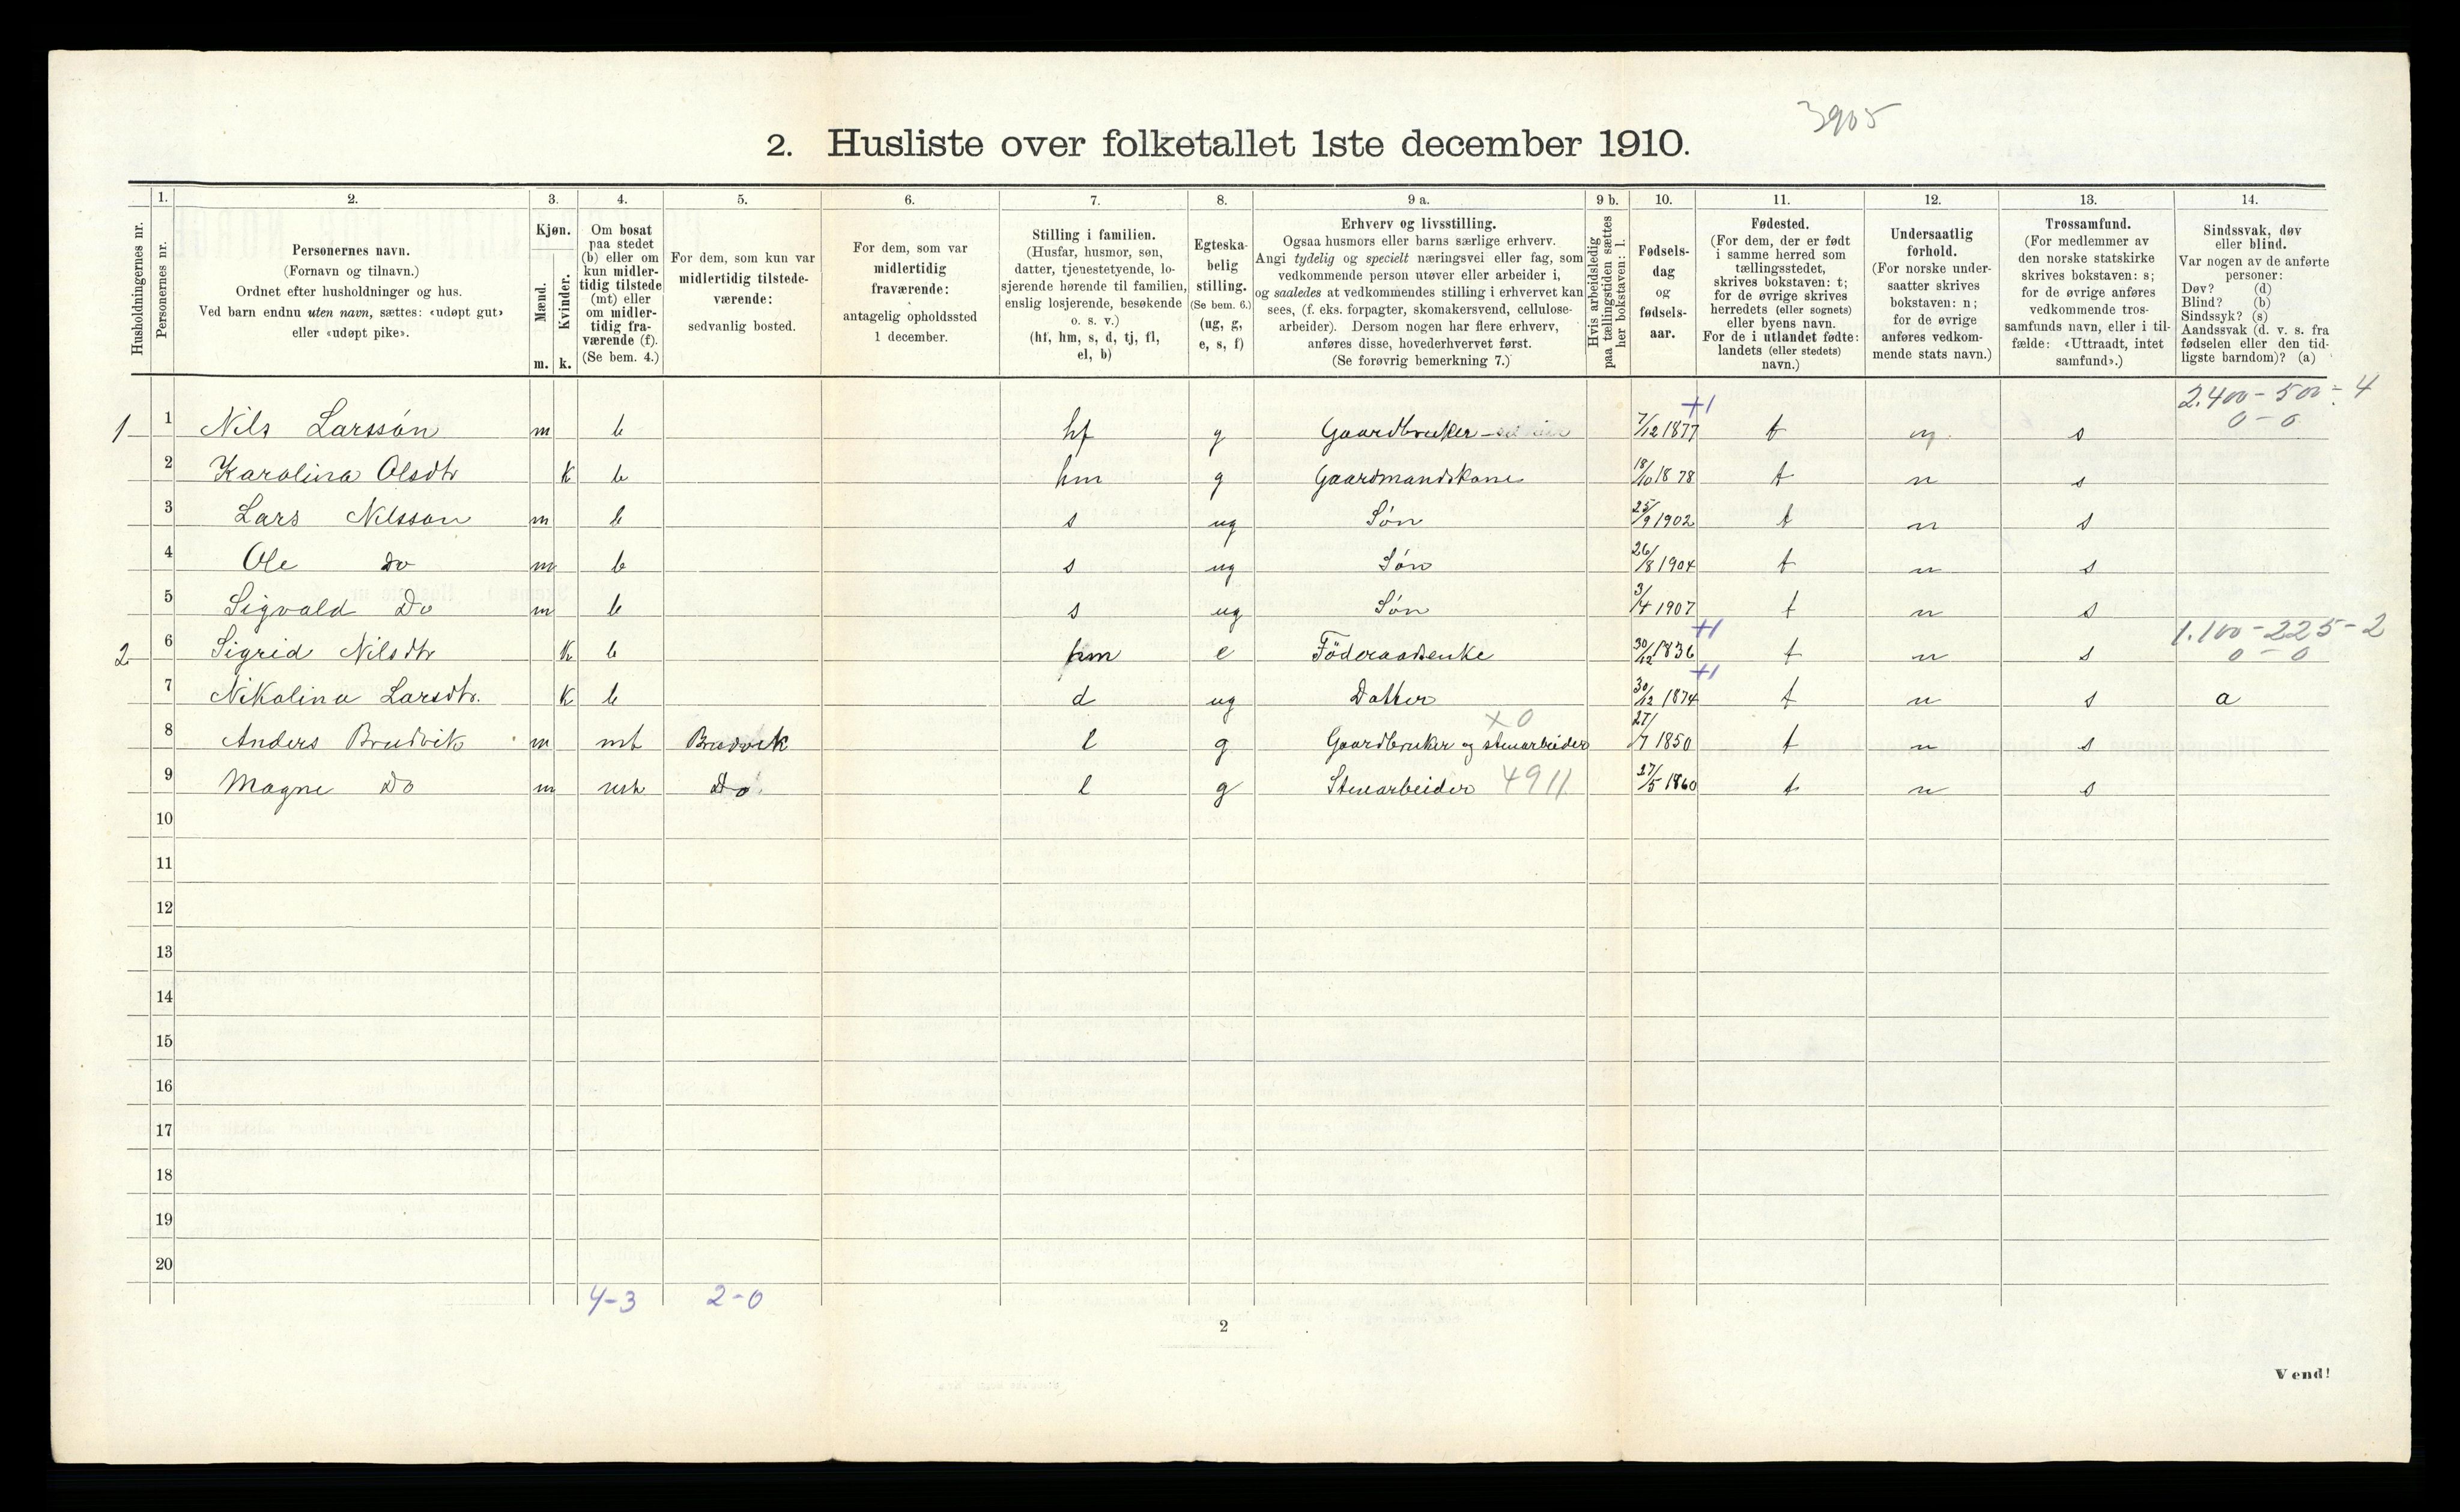 3905
2. Husliste over folketallet 1ste december 1910.
Husholdningernes nr.
1.
Personernes nr.
2.
Personernes navn.
(Fornavn og tilnavn.)
Ordnet efter husholdninger og hus.
Ved barn endnu uten navn, sættes: «udøpt gut»
eller «udøpt pike».
3.
Kjøn.
Mænd.
Kvinder.
m. k.
4.
Om bosat
paa stedet
(b) eller om
kun midler-
tidig tilstede
(mt) eller
om midler-
tidig fra-
værende (f).
(Se bem. 4.)
5.
For dem, som kun var
midlertidig tilstede-
værende:
sedvanlig bosted.
6.
For dem, som var
midlertidig
fraværende:
antagelig opholdssted
1 december.
7.
Stilling i familien.
(Husfar, husmor, søn,
datter, tjenestetyende, lo-
sjerende hørende til familien,
enslig losjerende, besøkende
o. s. v.)
(hf, hm, s, d, tj, fl,
el, b)
8.
Egteska-
belig
stilling.
(Se bem. 6.)
(ug, g,
e, s, f)
9 a.
Erhverv og livsstilling.
Ogsaa husmors eller barns særlige erhverv.
Angi tydelig og specielt næringsvei eller fag, som
vedkommende person utøver eller arbeider i,
og saaledes at vedkommendes stilling i erhvervet kan
sees, (f. eks. forpagter, skomakersvend, cellulose-
arbeider). Dersom nogen har flere erhverv,
anføres disse, hovederhvervet først.
(Se forøvrig bemerkning 7.)
9 b.
Hvis arbeidsledig
paa tællingstiden sættes
her bokstaven: l.
10.
Fødsels-
dag
og
fødsels-
aar.
11.
Fødested.
(For dem, der er født
i samme herred som
tællingsstedet,
skrives bokstaven: t;
for de øvrige skrives
herredets (eller sognets)
eller byens navn.
For de i utlandet fødte:
landets (eller stedets)
navn.)
12.
Undersaatlig
forhold.
(For norske under-
saatter skrives
bokstaven: n;
for de øvrige
anføres vedkom-
mende stats navn.)
13.
Trossamfund.
(For medlemmer av
den norske statskirke
skrives bokstaven: s;
for de øvrige anføres
vedkommende tros-
samfunds navn, eller i til-
fælde: «Uttraadt, intet
samfund».)
14.
Sindssvak, døv
eller blind.
Var nogen av de anførte
personer:
Døv? (d)
Blind? (b)
Sindssyk? (s)
Aandssvak (d. v. s. fra
fødselen eller den tid-
ligste barndom)? (a)
+1 2.400-500-4
0-0
1 1 Nils Larssón m b hf g Gaardbruker 7/12 1877 t n s
2 Karolina Olsdtr k b hm g Gaardmandskone 18/10 1878 t n s
3 Lars Nilsson m b s ug Søn 25/9 1902 t n s
4 Ole Do m b s ug Søn 26/8 1904 t n s
5 Sigvald Do m b s ug Søn 3/4 1907 t n s
+1 1.100-225-2
0-0
2 6 Sigrid Nilsdtr k b hm e Föderaadsenke 30/12 1836 t n s
+1
7 Nikolina Larsdtr. k b d ug Datter 30/12 1874 t n s a
x0
8 Anders Brudvik m mt Brudvik l g Gaardbruker og stenarbeider 27/7 1850 t n s
9 Magne Do m mt Do l g Stenarbeider 4911 17/5 1860 t n s
10
11
12
13
14
15
16
17
18
19
20
4-3 2-0
2
Vend!